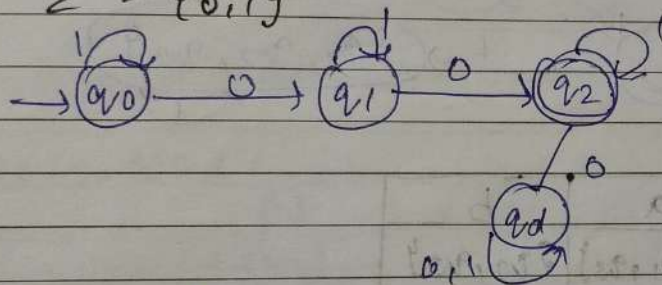 Σ = {0,1}
1 1
→ q0 0 q1 0 q2
0
qd
0,1